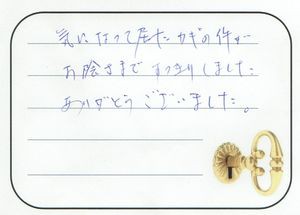 気になって居たカギの件が
お陰さまですっきりしました
ありがとうございました。